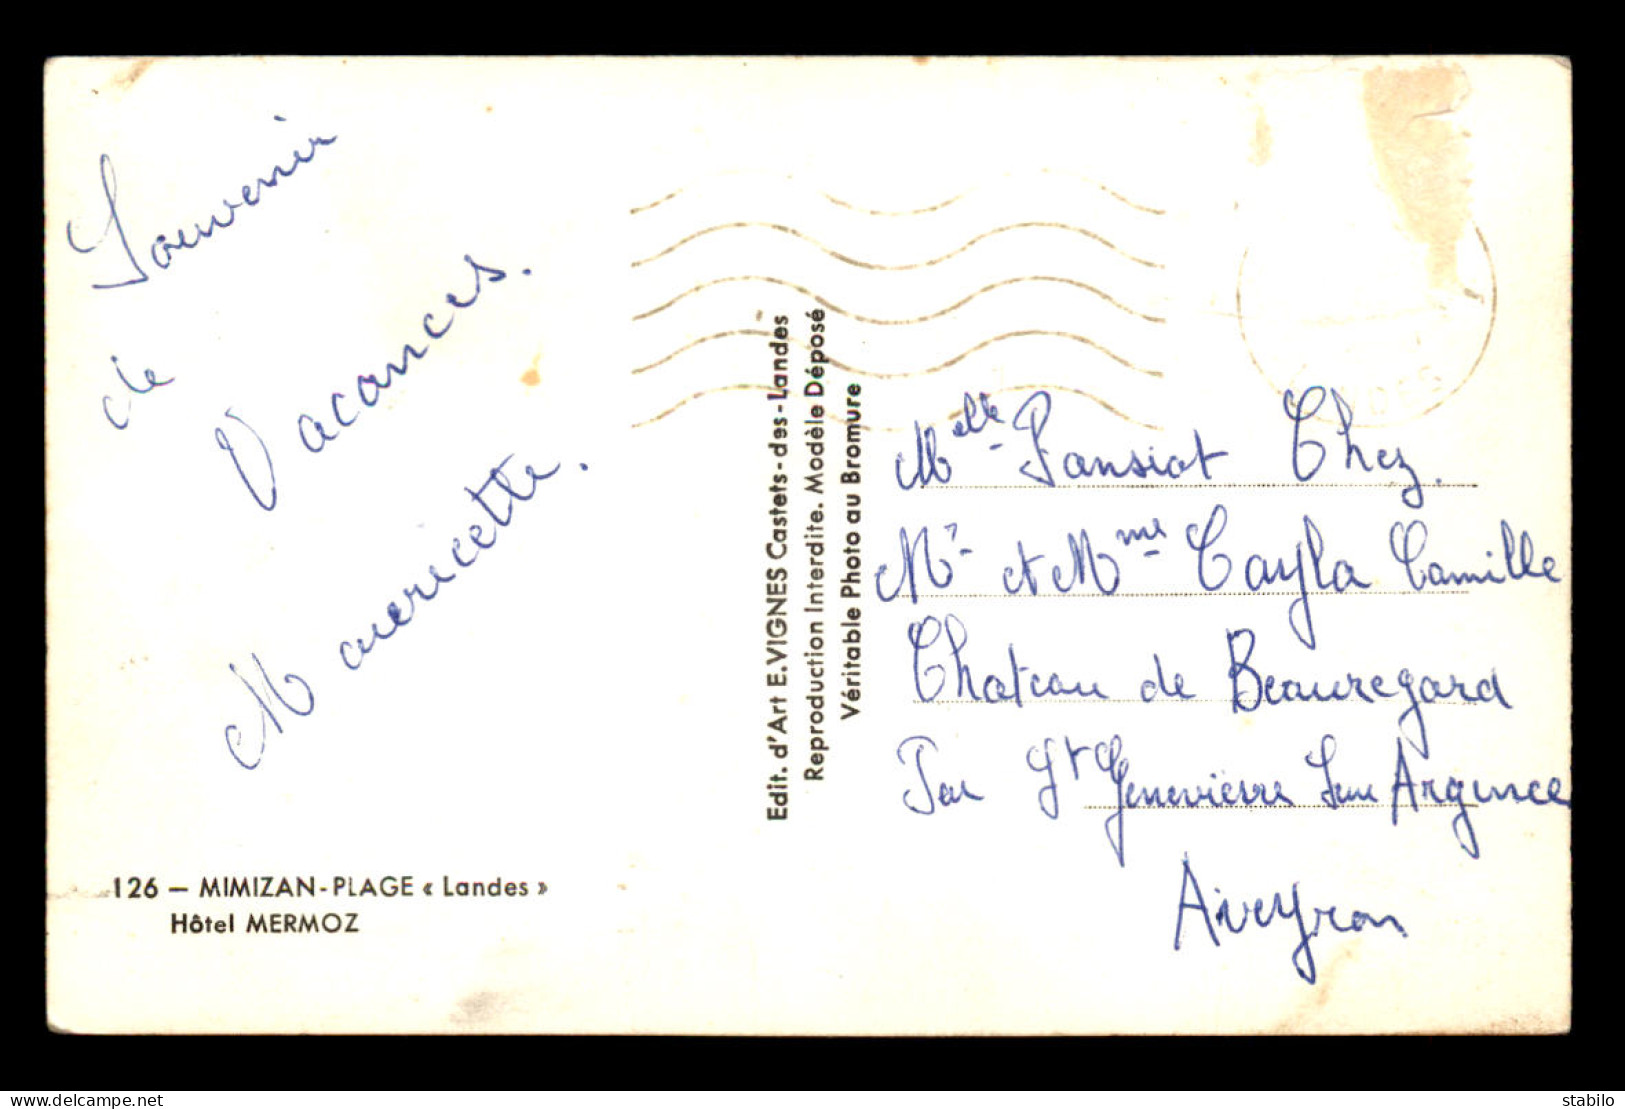 Souvenir
de
Vacances.
Mauricette.
126 — MIMIZAN-PLAGE « Landes »
Hôtel MERMOZ
Edit. d'Art E. VIGNES Castets-des-Landes
Reproduction Interdite. Modèle Déposé
Véritable Photo au Bromure
Melle Pansiot Chez.
Mr et Mme Cayla Camille
Chateau de Beauregard
Par St Genevieve Sur Argence
Aveyron
delcampe.net
stabilo